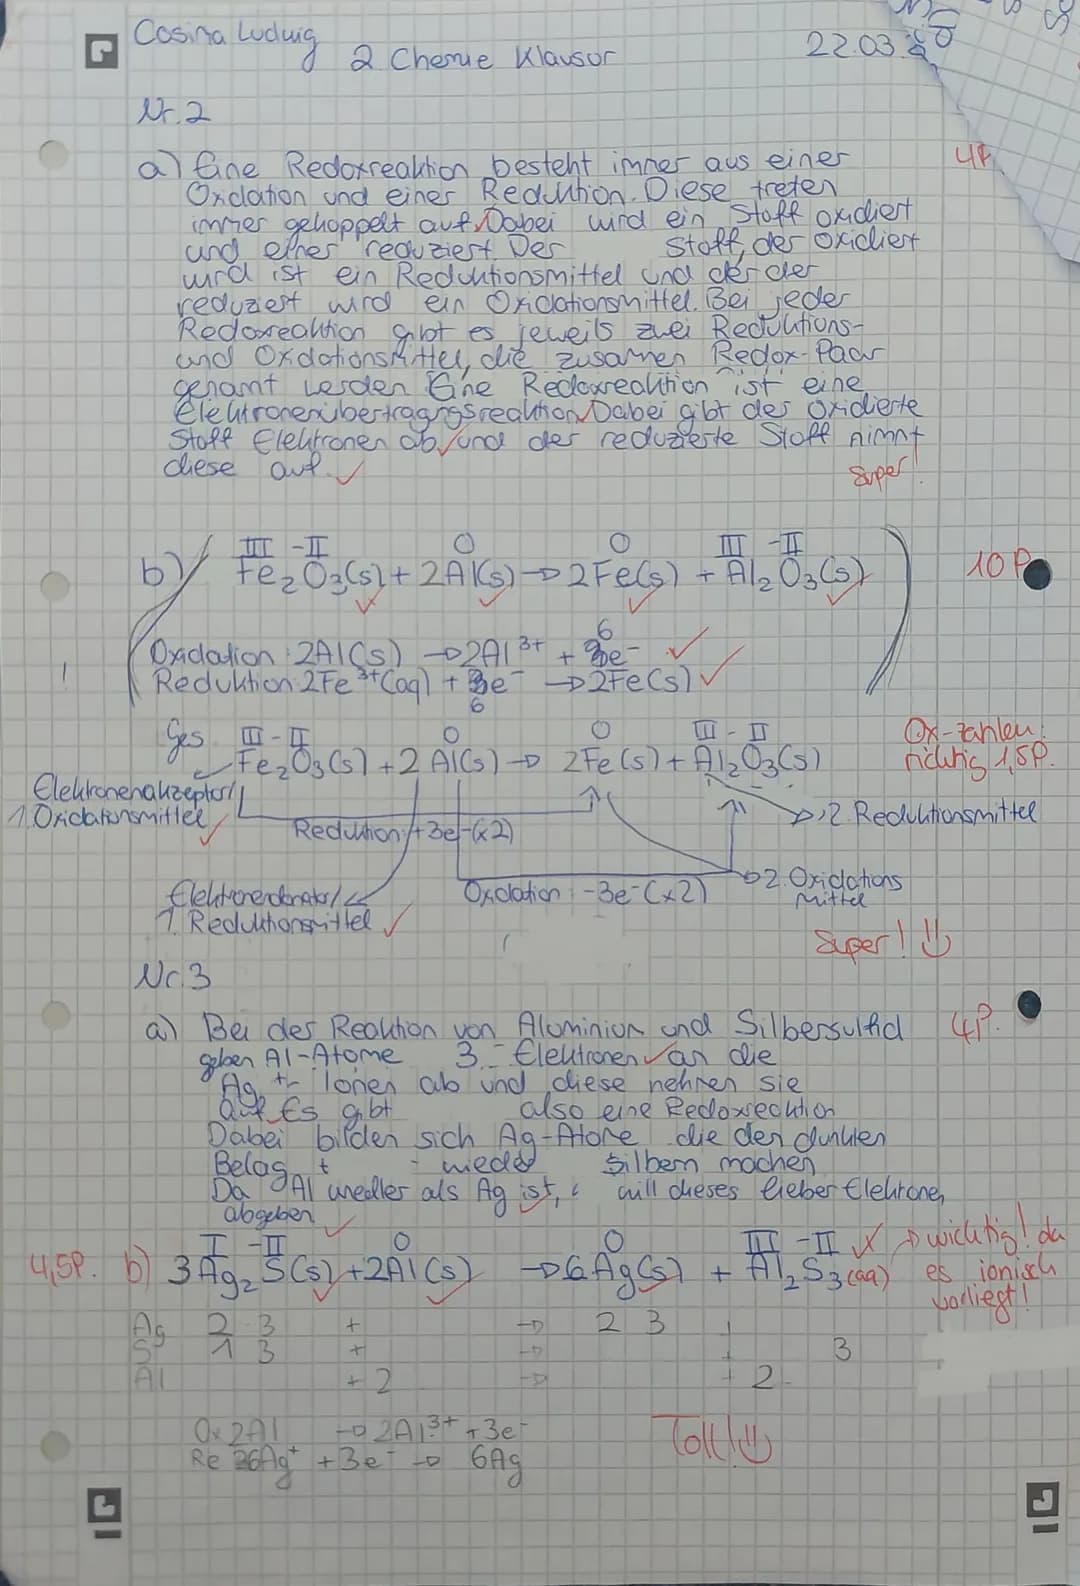 Cosima Ludwig
2 Chemie Klausur
22.03.
Nr. 2
a) Eine Redoxreaktion besteht immer aus einer
4P
Oxidation und einer Reduktion. Diese treten
immer gekoppelt auf. Dabei wird ein Stoff oxidiert
und einer reduziert. Der Stoff, der oxidiert
wird ist ein Reduktionsmittel und der der
reduziert wird ein Oxidationsmittel. Bei jeder
Redoxreaktion gibt es jeweils zwei Reduktions-
und Oxidationsmittel, die zusammen Redox-Paar
genannt werden. Eine Redoxreaktion ist eine
Elektronenübertragungsreaktion. Dabei gibt der oxidierte
Stoff Elektronen ab und der reduzierte Stoff nimmt
diese auf.
Super!
III -II 0 0 III -II
b) Fe₂O₃(s) + 2Al(s) → 2Fe(s) + Al₂O₃(s)
10P
6
Oxidation: 2Al(s) → 2Al³⁺ + e⁻
!
Reduktion: 2Fe³⁺(aq) + e⁻ → 2Fe(s)
6
Ges. III -II 0 0 III -II
Fe₂O₃(s) + 2Al(s) → 2Fe(s) + Al₂O₃(s)
Ox-zahlen:
richtig 1,5P.
Elektronenakzeptor/
1. Oxidationsmittel
Reduktion: +3e⁻(x2)
2. Reduktionsmittel
Elektronendonator/
1. Reduktionsmittel
Oxidation: -3e⁻(x2)
2. Oxidations
mittel
Super!
Nr. 3
a) Bei der Reaktion von Aluminium und Silbersulfid
4P.
geben Al-Atome 3 Elektronen an die
Ag⁺-Ionen ab und diese nehmen sie
auf. Es gibt also eine Redoxreaktion
Dabei bilden sich Ag-Atome die den dunklen
Belag wieder silbern machen
Da Al unedler als Ag ist, will dieses lieber Elektronen
abgeben
I -II 0 0 III -II
→ wichtig! da
4,5P. b) 3Ag₂S(s) + 2Al(s) → 6Ag(s) + Al₂S₃(aq)
es ionisch
vorliegt!
Ag 2 3 + → 2 3 +
S 1 3 + → + 3
Al + 2 → + 2
Ox 2Al → 2Al³⁺ + 3e⁻
Re 6Ag⁺ + 3e⁻ → 6Ag
Toll!